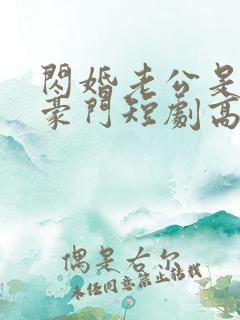 閃婚老公是
豪門短劇高
偶是右尔
未经同意禁止转载